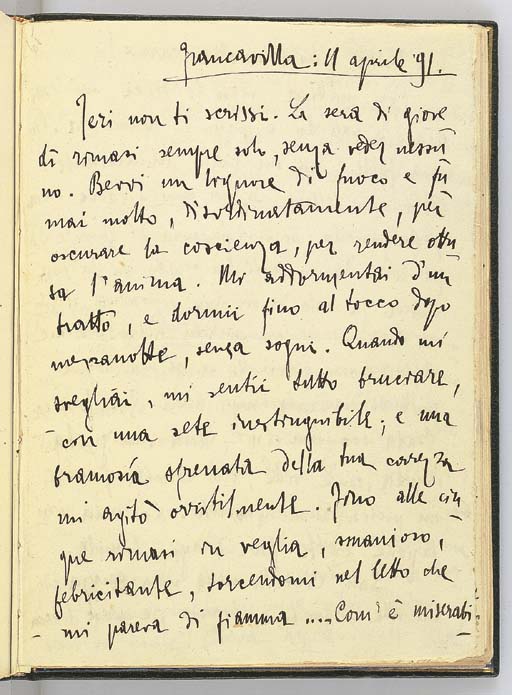 Francavilla: 11 aprile '91.
Ieri non ti scrissi. La sera di giove
dì rimasi sempre solo, senza veder nessu
no. Bevvi un liquore di fuoco e fu
mai molto, disordinatamente, per
oscurare la coscienza, per rendere ottu
sa l'anima. Mi addormentai d'un
tratto, e dormii fino al tocco dopo
mezzanotte, senza sogni. Quando mi
svegliai, mi sentii tutto bruciare,
con una sete inestinguibile; e una
bramosía sfrenata della tua carezza
mi agitò orribilmente. Fino alle cin
que rimasi in veglia, smanioso,
febricitante, torcendomi nel letto che
mi pareva di fiamma .... Com'è miserabi-